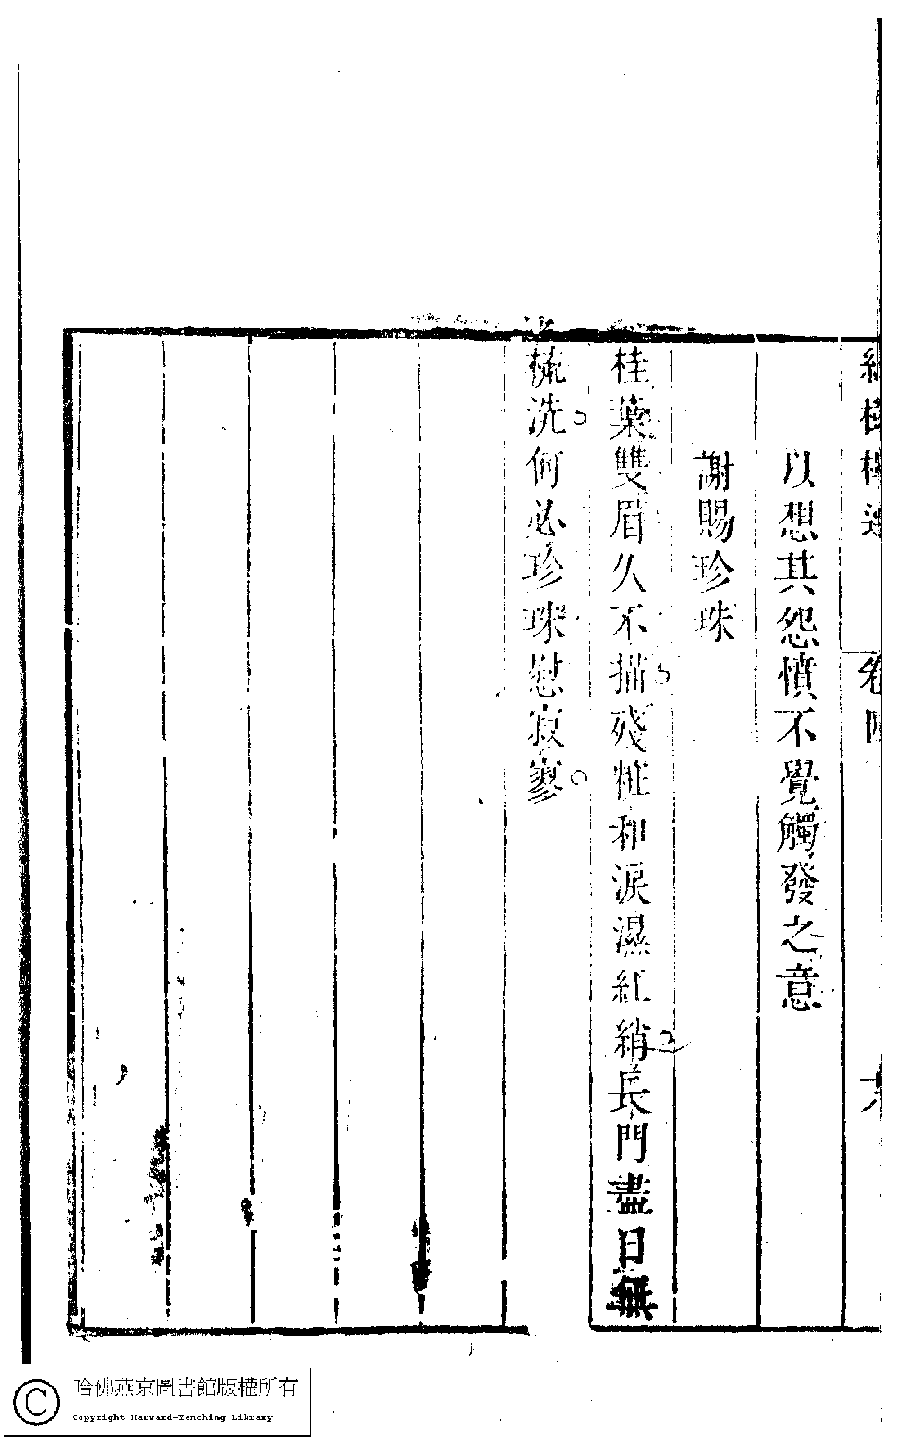 以想其怨憤不覺觸發之意
謝賜珍珠
桂葉雙眉久不描殘粧和淚濕紅綃長門盡日無
梳洗何必珍珠慰寂寥
哈佛燕京圖書館版權所有
Copyright Harvard-Yenching Library